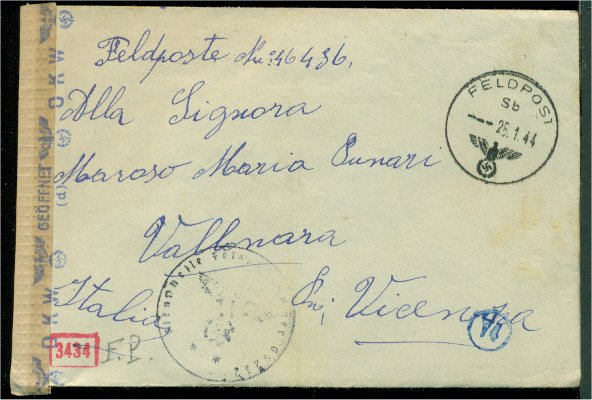 Feldposte Nr: 46436.
Alla Signora
Maroso Maria Cunari
Vallonara
Italia Prov. Vicenza
FELDPOST
Sb
-- 25.1.44
GEÖFFNET
(d)
OKW
OKW
OKW
3434
F.P.